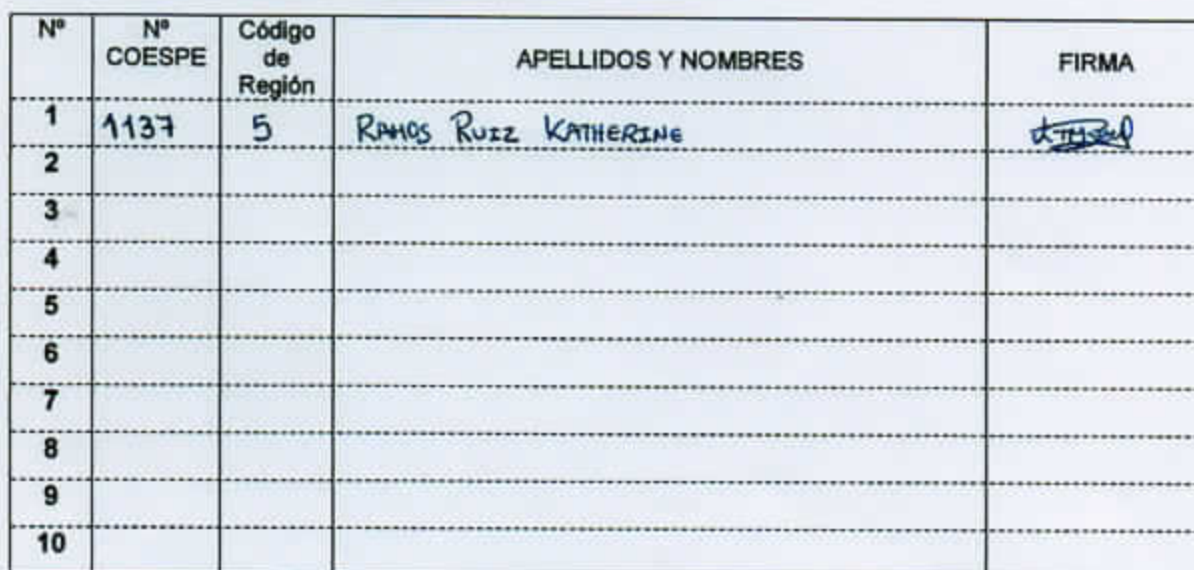 Nº Nº COESPE Código de Región APELLIDOS Y NOMBRES FIRMA
1 1137 5 RAMOS RUIZ KATHERINE
2
3
4
5
6
7
8
9
10